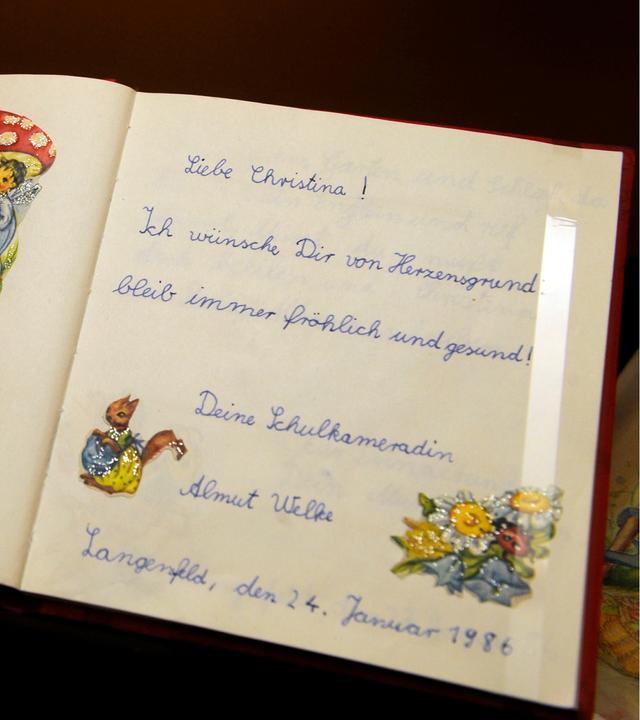 Liebe Christina !
Ich wünsche Dir von Herzensgrund:
bleib immer fröhlich und gesund!
Deine Schulkameradin
Almut Welke
Langenfeld, den 24. Januar 1986